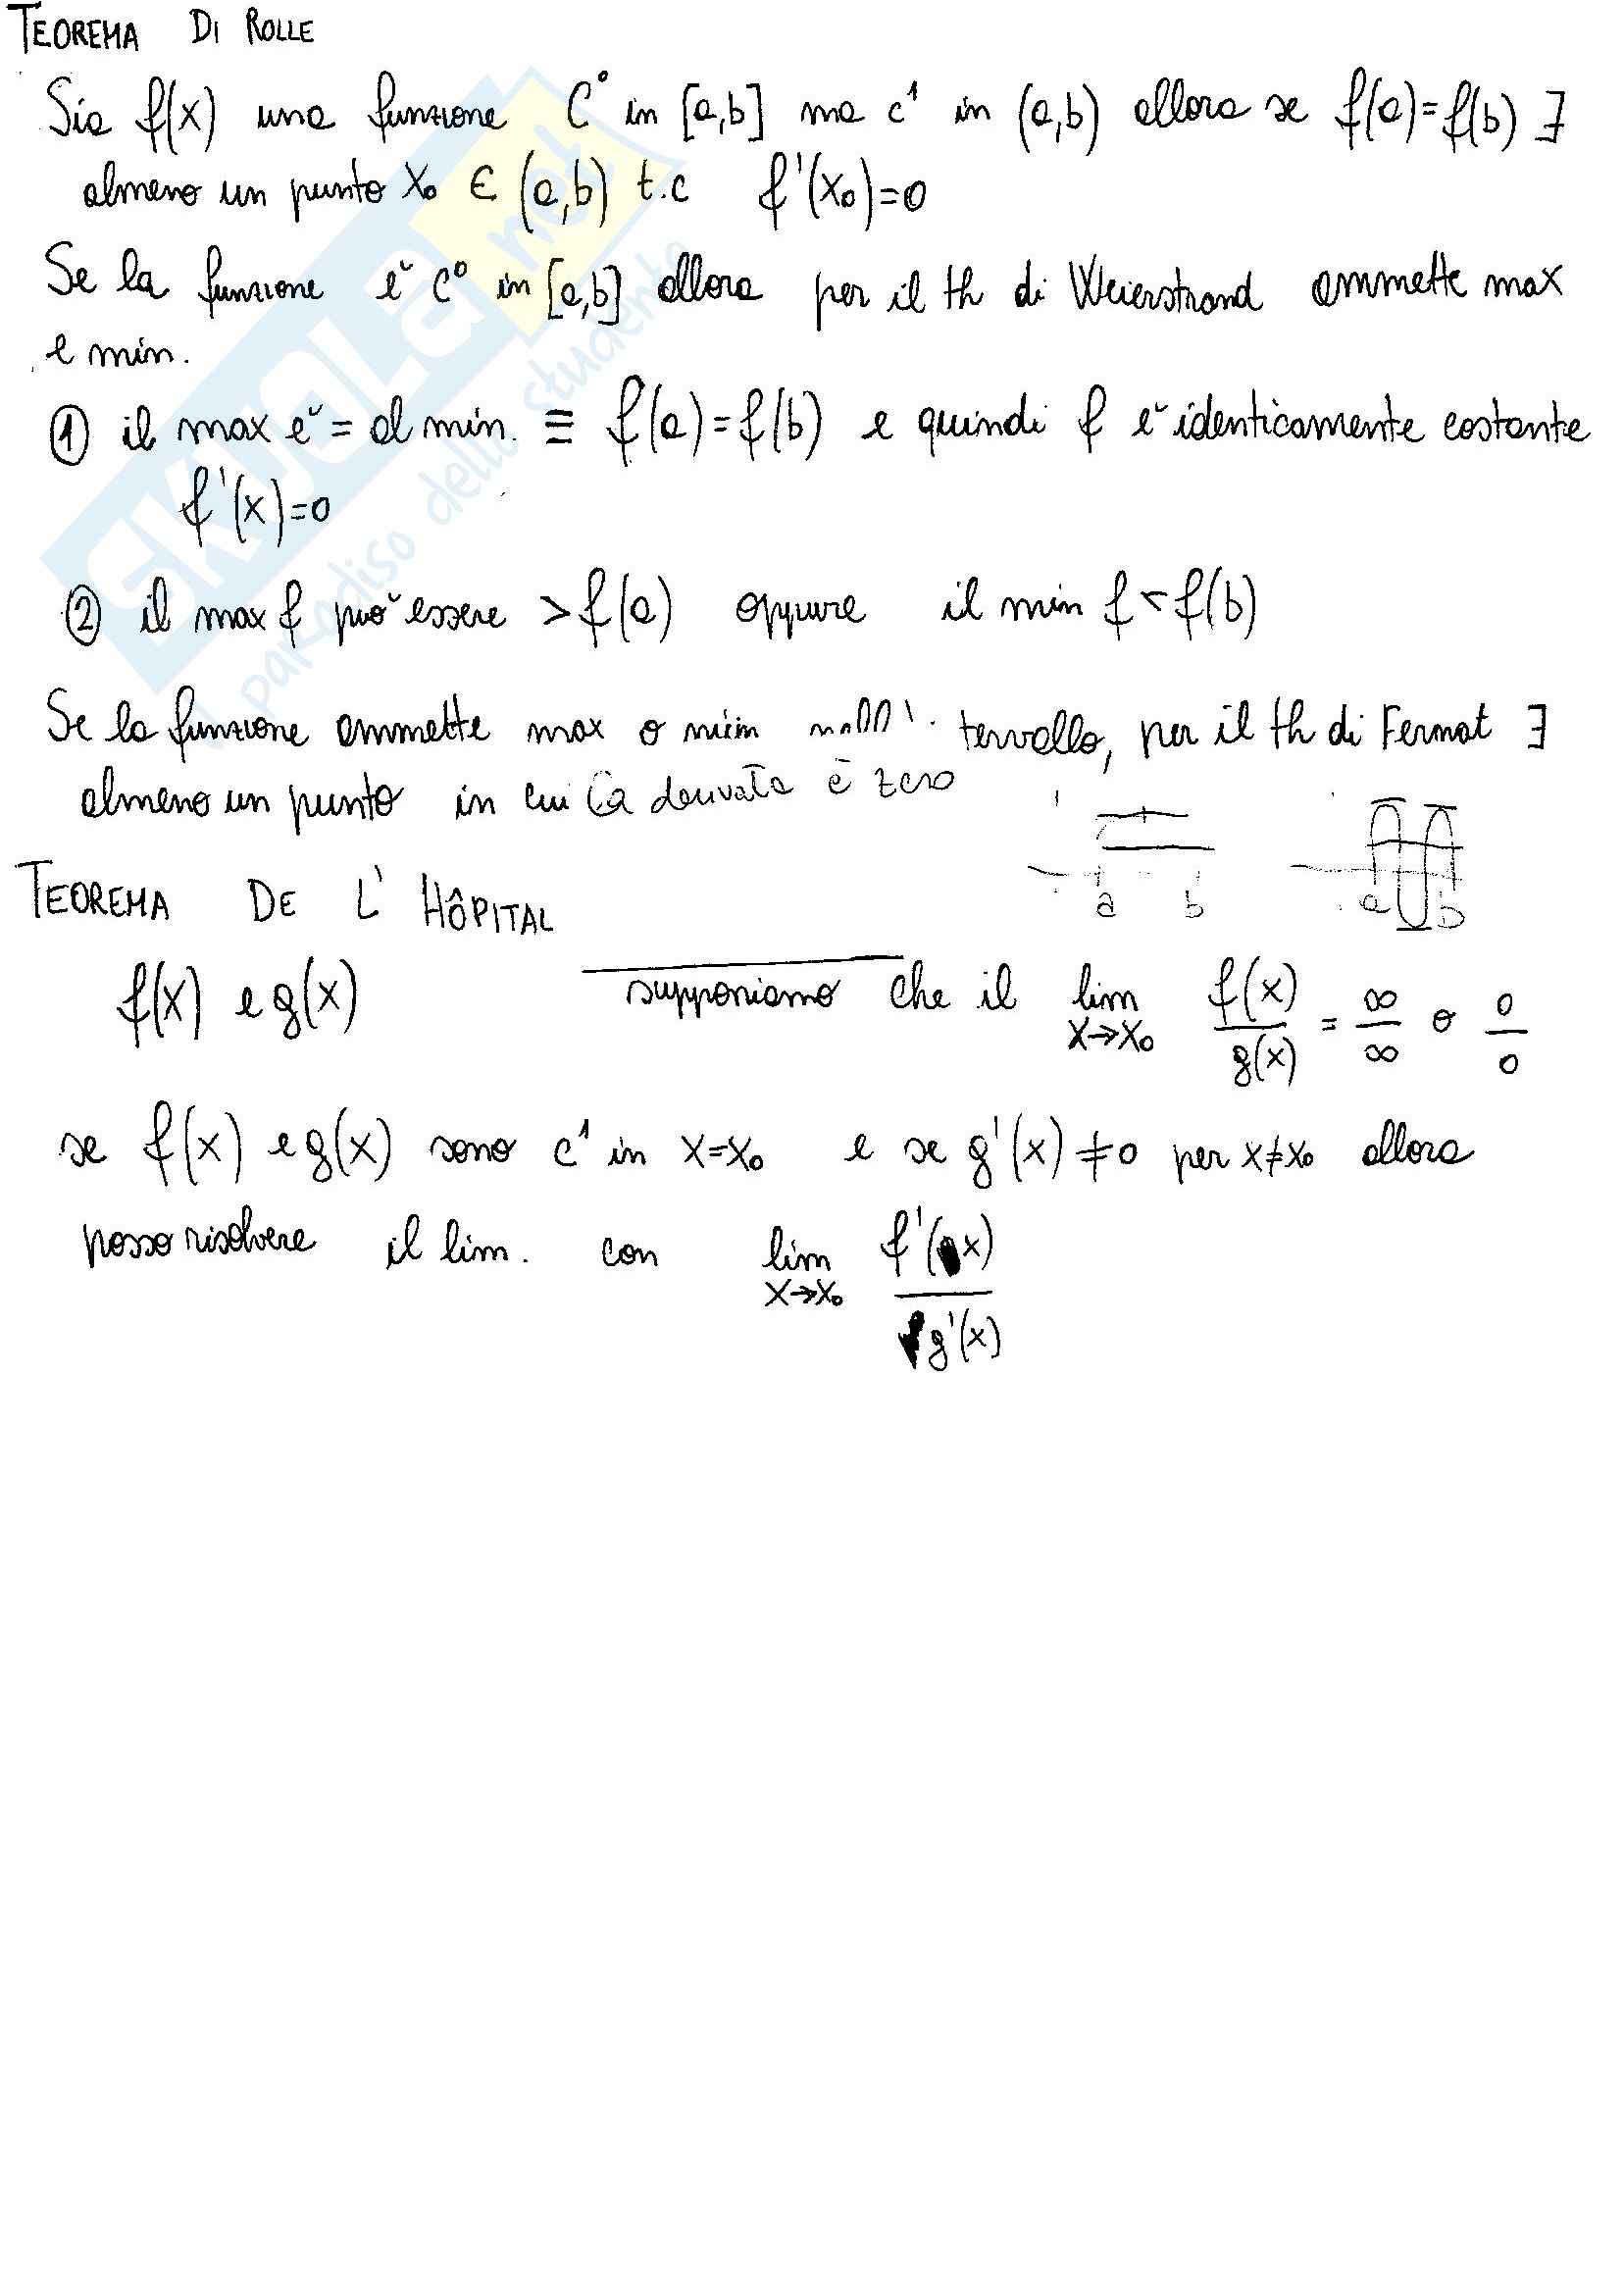 TEOREMA DI ROLLE
Sia f(x) una funzione C⁰ in [a,b] ma c¹ in (a,b) allora se f(a)=f(b) ∃
almeno un punto x₀ ∈ (a,b) t.c f'(x₀)=0
Se la funzione è c⁰ in [a,b] allora per il th di Weierstrand ammette max
e min.
① il max è = al min. ≡ f(a)=f(b) e quindi f è identicamente costante
f'(x)=0
② il max f può essere >f(a) oppure il min f<f(b)
Se la funzione ammette max o min tervallo, per il th di Fermat ∃
almeno un punto in cui la derivata è zero
a b a b
TEOREMA DE L'HÔPITAL
f(x) e g(x) supponiamo che il lim x→x₀ f(x)/g(x) = ∞/∞ o 0/0
se f(x) e g(x) sono c¹ in x=x₀ e se g'(x)≠0 per x≠x₀ allora
posso risolvere il lim. con lim x→x₀ f'(x)/g'(x)
SKUOLA.net
il paradiso dello studente